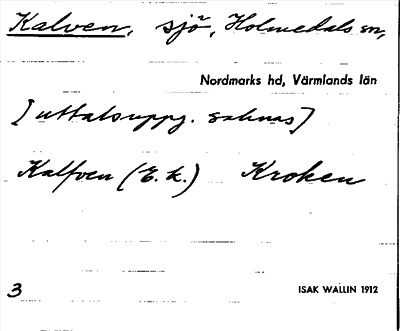 Kalven, sjö, Holmedals sn,
Nordmarks hd, Värmlands län
[uttalsuppg. saknas]
Kalfven (E.k.) Kroken
3
ISAK WALLIN 1912